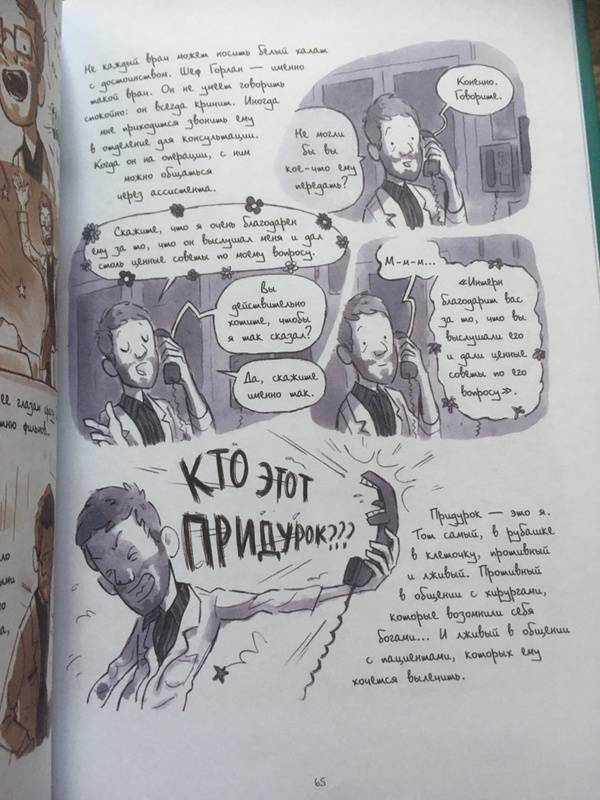 Не каждый врач может носить белый халат
с достоинством. Шеф Горлан — именно
такой врач. Он не умеет говорить
спокойно: он всегда кричит. Иногда
мне приходится звонить ему
в отделение для консультации.
Когда он на операции, с ним
можно общаться
через ассистента.
Не могли
бы вы
кое-что ему
передать?
Конечно.
Говорите.
Скажите, что я очень благодарен
ему за то, что он выслушал меня и дал
столь ценные советы по моему вопросу.
Вы
действительно
хотите, чтобы
я так сказал?
Да, скажите
именно так.
М-м-м...
«Интерн
благодарит вас
за то, что вы
выслушали его
и дали ценные
советы по его
вопросу».
КТО ЭТОТ
ПРИДУРОК???
Придурок — это я.
Тот самый, в рубашке
в клеточку, противный
и лживый. Противный
в общении с хирургами,
которые возомнили себя
богами... И лживый в общении
с пациентами, которых ему
хочется вылечить.
65
ее глазам